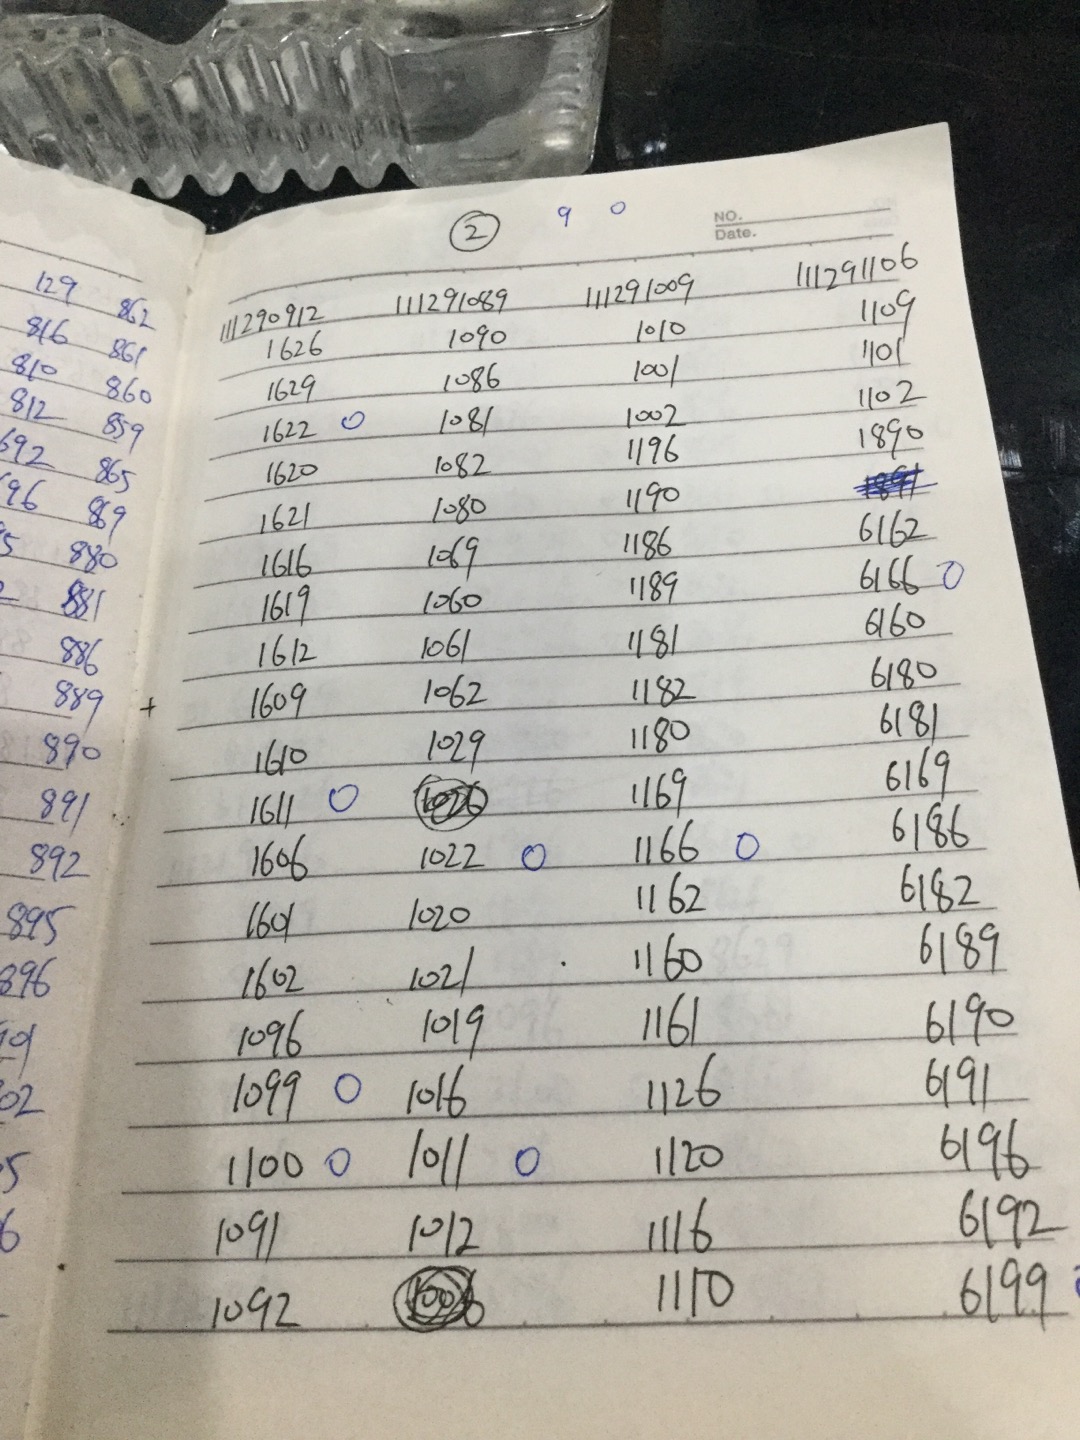 ② 9 0
NO.
Date.
111290912 111291089 111291009 111291106
1626 1090 1010 1109
1629 1086 1001 1101
1622 0 1081 1002 1102
1620 1082 1196 1890
1621 1080 1190
1616 1069 1186 6162
1619 1060 1189 6166 0
1612 1061 1181 6160
1609 1062 1182 6180
1610 1029 1180 6181
1611 0 1026 1169 6169
1606 1022 0 1166 0 6186
1601 1020 1162 6182
1602 1021 1160 6189
1096 1019 1161 6190
1099 0 1016 1126 6191
1100 0 1011 0 1120 6196
1091 1012 1116 6192
1092 1006 1110 6199
129 862
816 861
810 860
812 859
692 865
96 869
880
881
886
889 +
890
891
892
895
896